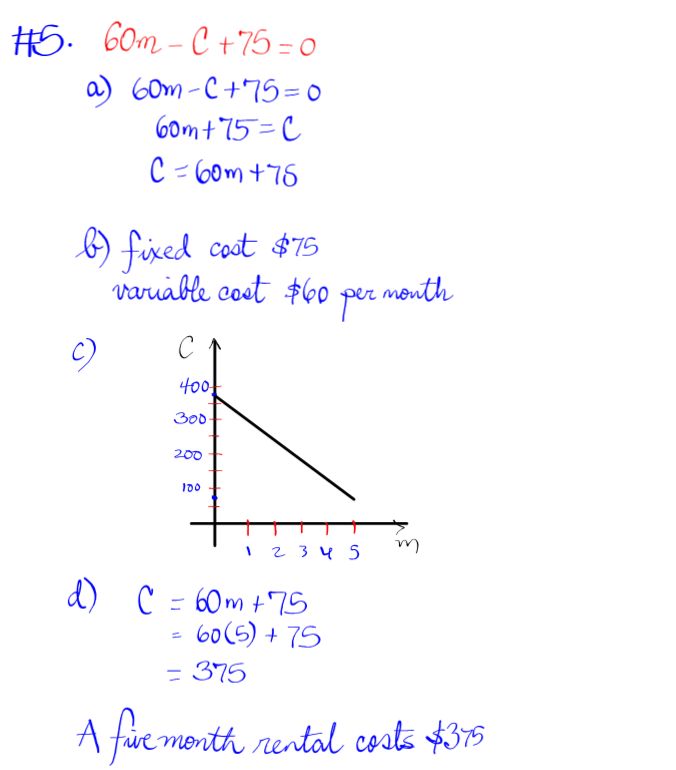 #5. 60m - C + 75 = 0
a) 60m - C + 75 = 0
60m + 75 = C
C = 60m + 75
b) fixed cost $75
variable cost $60 per month
c)
C
400
300
200
100
1 2 3 4 5 m
d) C = 60m + 75
= 60(5) + 75
= 375
A five month rental costs $375